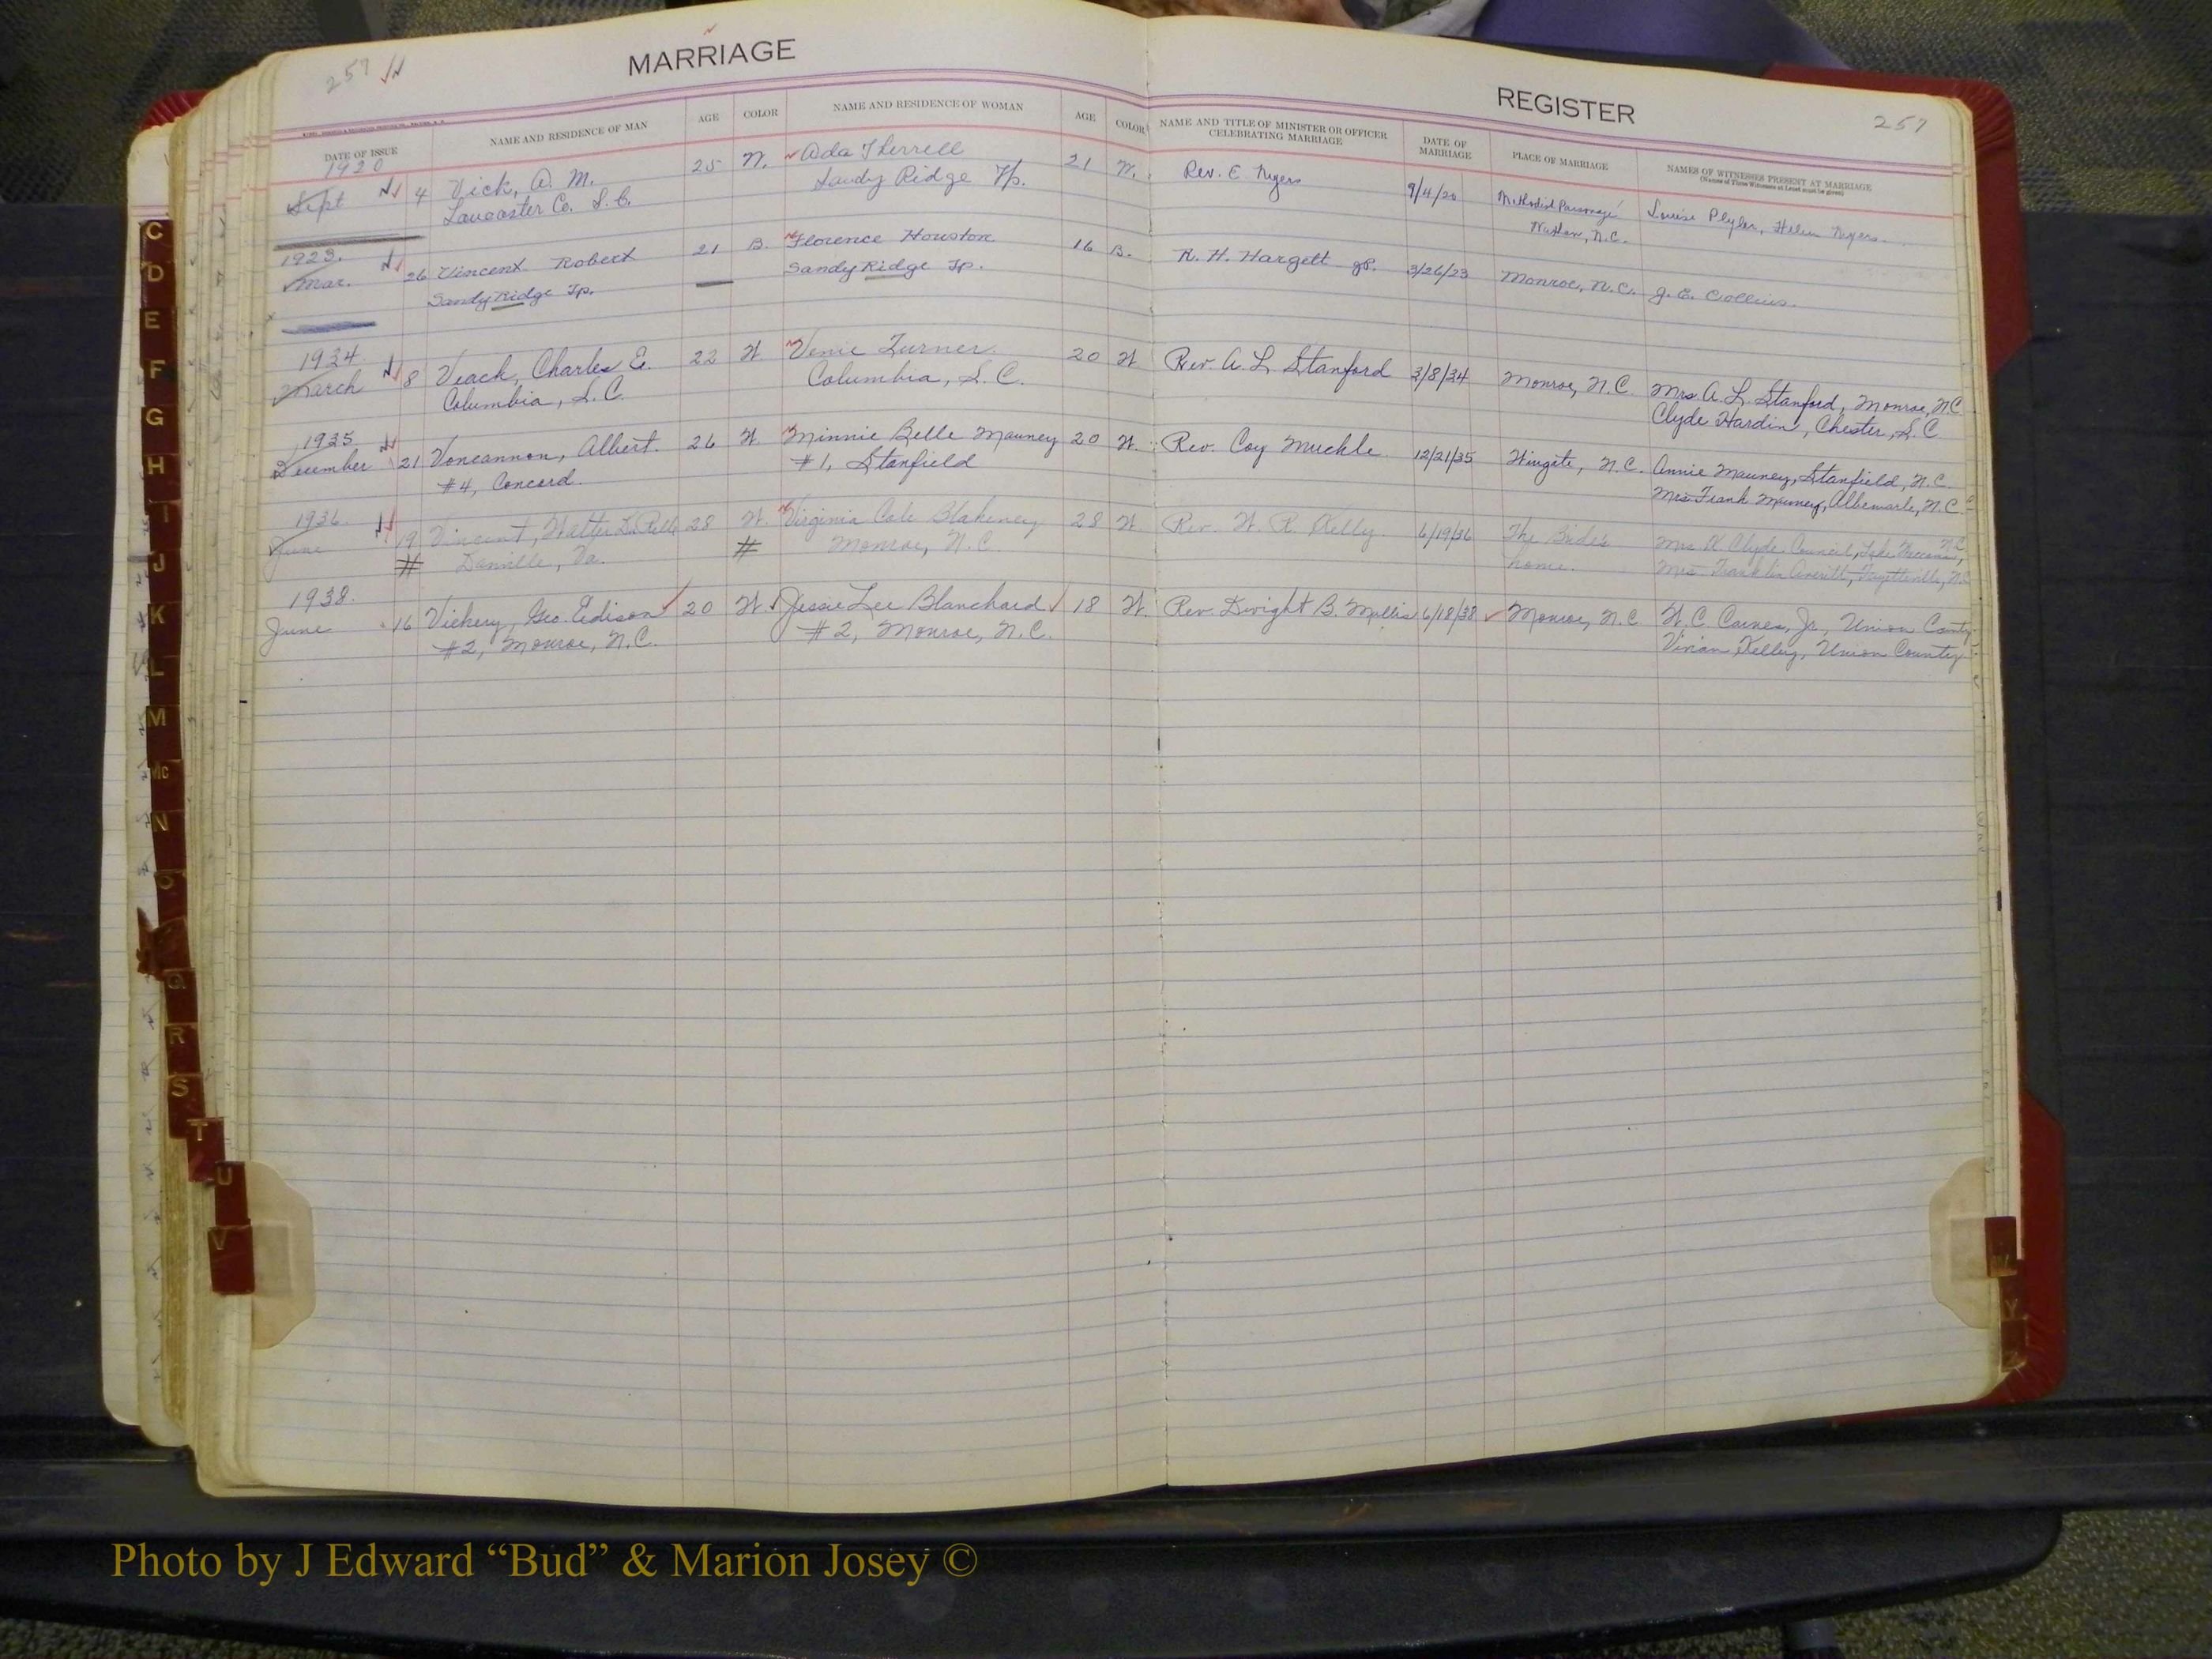 257
MARRIAGE
REGISTER
257
DATE OF ISSUE NAME AND RESIDENCE OF MAN AGE COLOR NAME AND RESIDENCE OF WOMAN AGE COLOR NAME AND TITLE OF MINISTER OR OFFICER CELEBRATING MARRIAGE DATE OF MARRIAGE PLACE OF MARRIAGE NAMES OF WITNESSES PRESENT AT MARRIAGE
(Names of Three Witnesses at Least must be given)
1920
Sept 4 Vick, A. M. 25 W. Ada Therrell 21 W. Rev. E Myers 9/4/20 Methodist Parsonage Louise Plyler, Helen Myers
Lancaster Co. S.C. Sandy Ridge Tp. Waxhaw, N.C.
1923.
Mar. 26 Vincent Robert 21 B. Florence Houston 16 B. R. H. Hargett J.P. 3/26/23 Monroe, N.C. J. E. Collins.
Sandy Ridge Tp. Sandy Ridge Tp.
1934
March 8 Veach, Charles E. 22 W. Venie Turner. 20 W Rev. A. L. Stanford 3/8/34 Monroe, N.C. Mrs. A. L. Stanford, Monroe, N.C.
Columbia, S.C. Columbia, S.C. Clyde Hardin, Chester, S.C.
1935
December 21 Voncannon, Albert. 26 W. Minnie Belle Mauney 20 W. Rev. Coy Muckle 12/21/35 Wingate, N.C. Annie Mauney, Stanfield, N.C.
#4, Concord. #1, Stanfield Mrs. Frank Mauney, Albemarle, N.C.
1936
June 19 Vincent, Walter 28 W. Virginia Cole Blakeney 28 W Rev. W. R. Kelly. 6/19/36 The Bride's Mrs. K. Clyde Council, Lake Waccamaw, N.C.
# Danville, Va. # Monroe, N.C. home. Mrs. Franklin Averitt, Fayetteville, N.C.
1938.
June 16 Vickery, Geo. Edison 20 W. Jessie Lee Blanchard 18 W. Rev. Dwight B. Mullis 6/18/38 Monroe, N.C. W. C. Carnes, Jr., Union County
#2, Monroe, N.C. #2, Monroe, N.C. Vivian Kelley, Union County
C
D
E
F
G
H
I
J
K
L
M
Mc
N
O
Q
R
S
T
U
V
W
Y
Z
Photo by J Edward “Bud” & Marion Josey ©